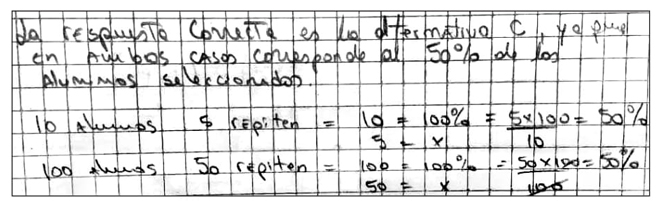 La respuesta correcta es la alternativa C, ya que
en ambos casos corresponde al 50% de los
Alumnos seleccionados.
10 Alumnos 5 repiten = 10 = 100% = 5x100 = 50%
5 = x 10
100 alumnos 50 repiten = 100 = 100% = 50x100 = 50%
50 = x 100